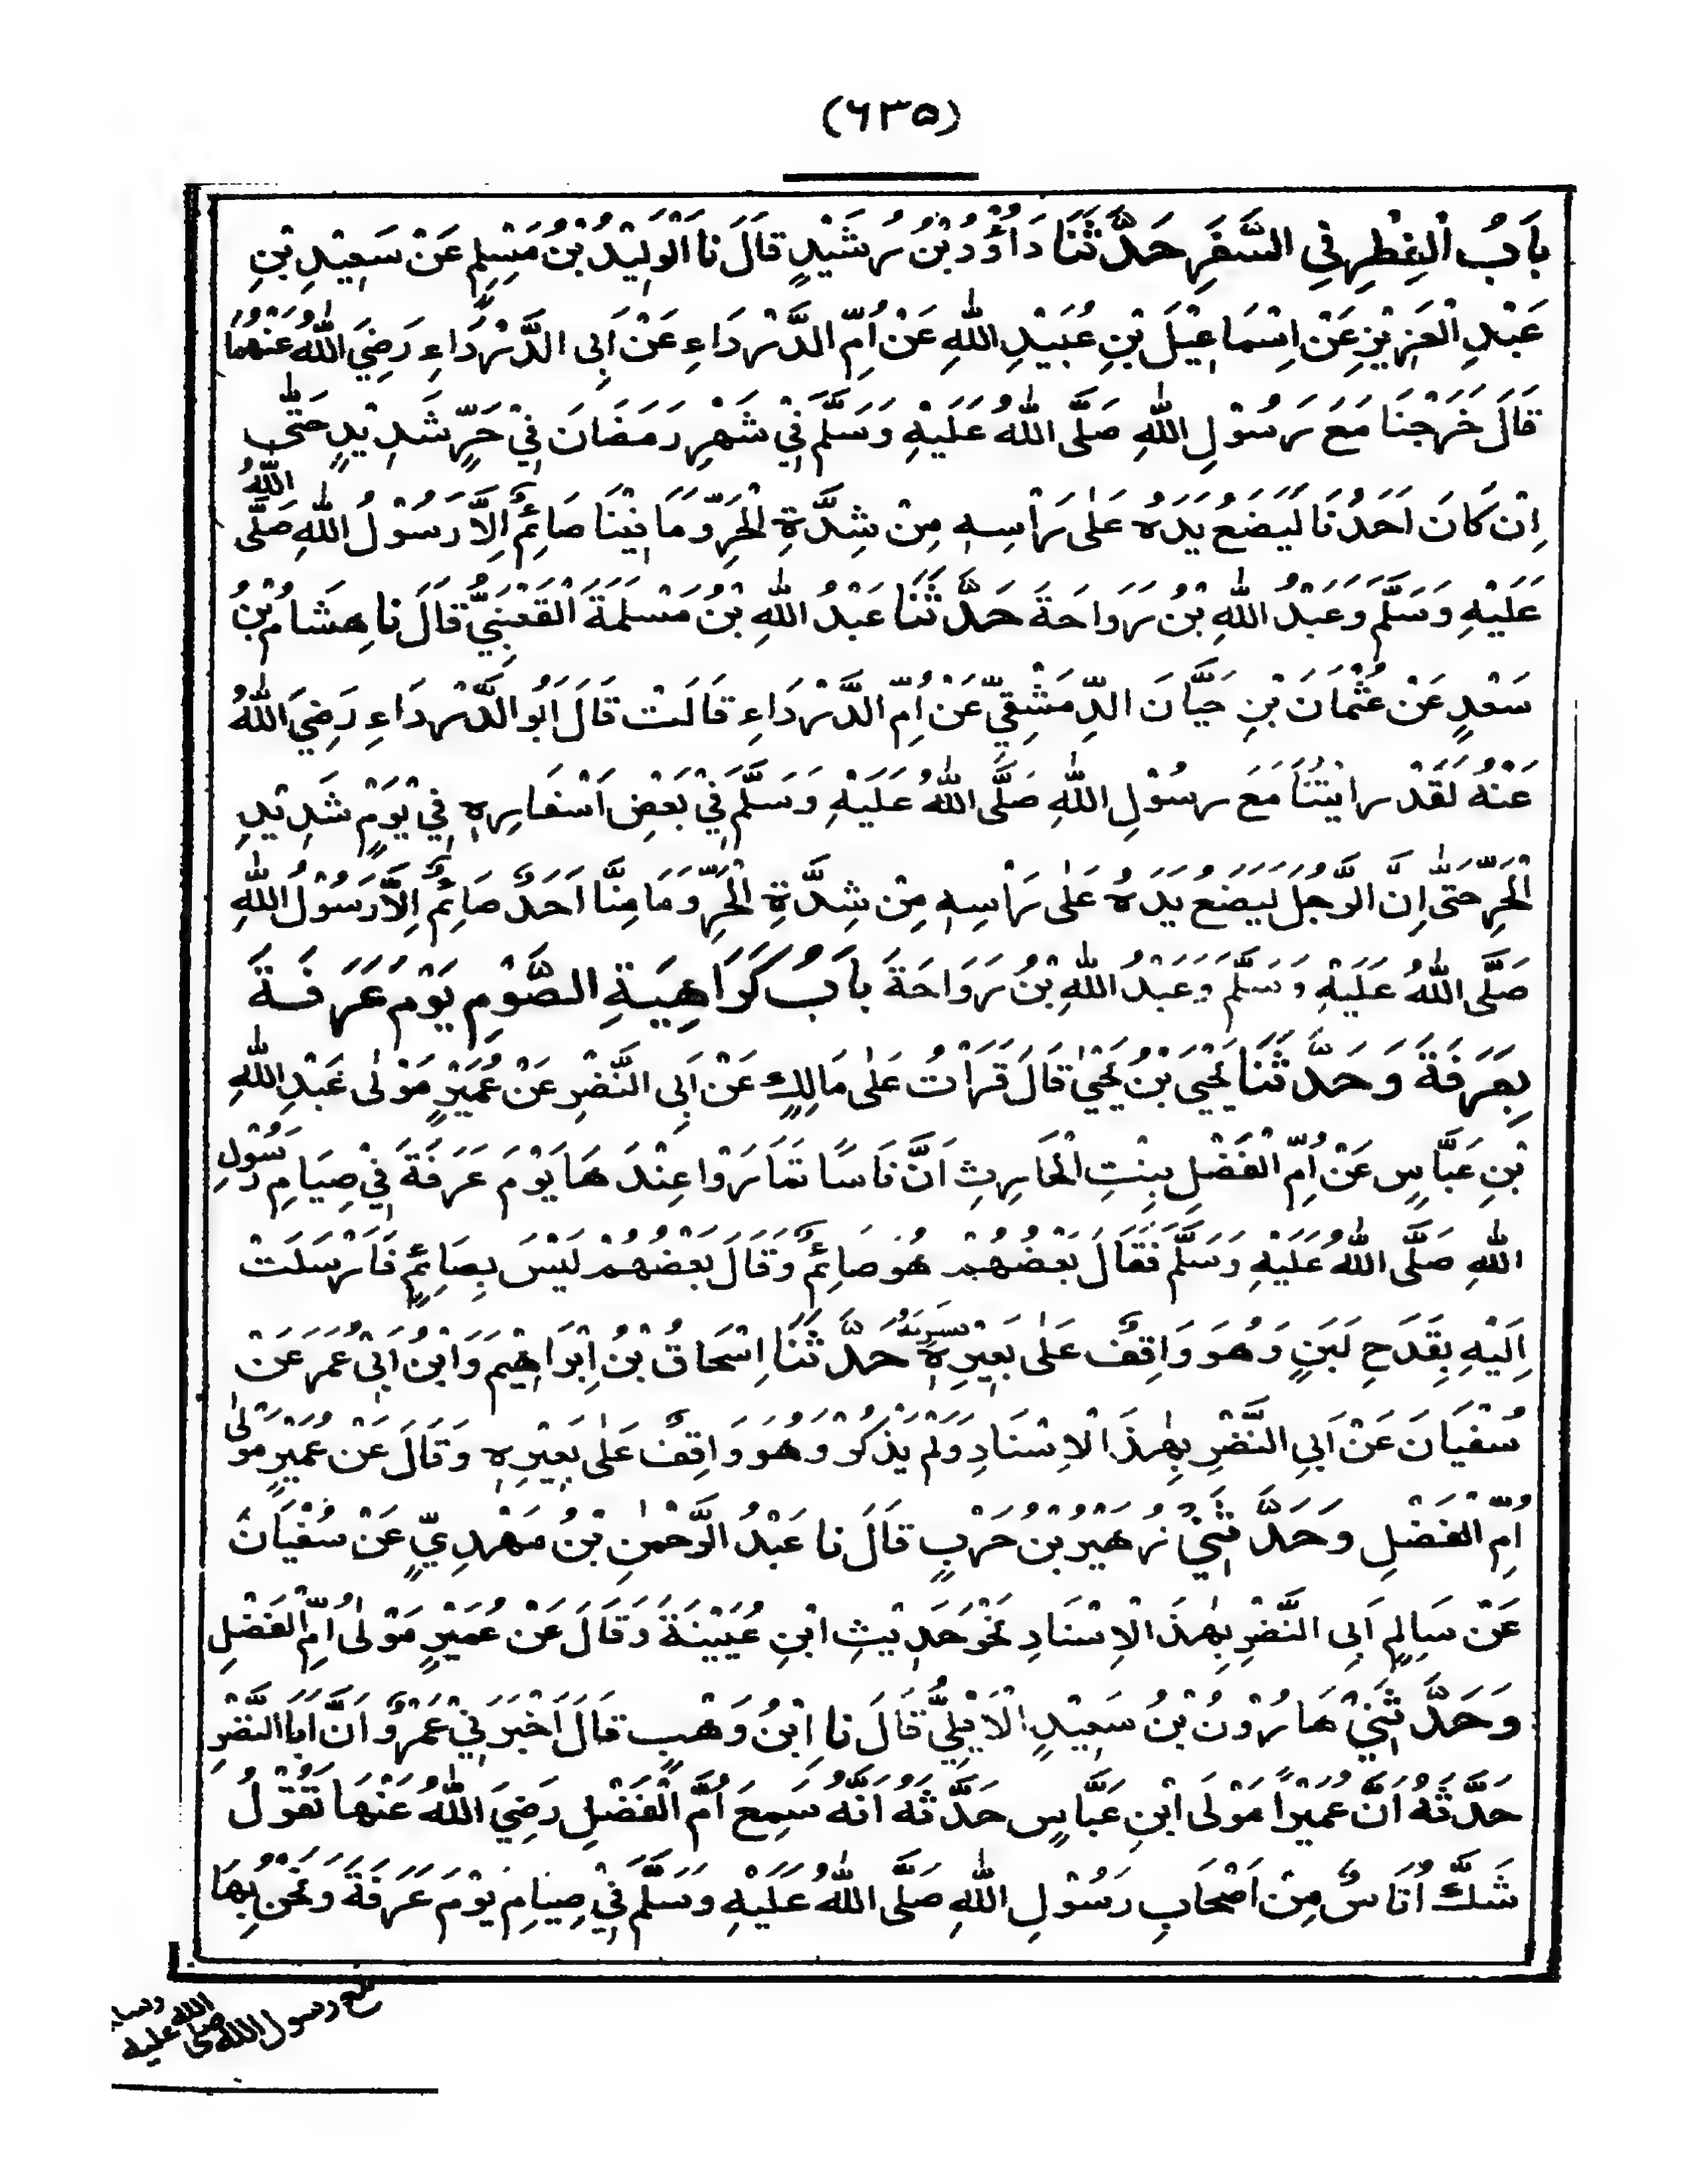 (۶۳۵)
بَابُ الْفِطْرِ فِي السَّفَرِ حَدَّثَنَا دَاوُدُ بْنُ رُشَيْدٍ قَالَ نَا الْوَلِيْدُ بْنُ مُسْلِمٍ عَنْ سَعِيْدِ بْنِ
عَبْدِ الْعَزِيْزِ عَنْ اِسْمَاعِيْلَ بْنِ عُبَيْدِ اللّٰهِ عَنْ اُمِّ الدَّرْدَاءِ عَنْ اَبِى الدَّرْدَاءِ رَضِيَ اللّٰهُ عَنْهُمَا
قَالَ خَرَجْنَا مَعَ رَسُوْلِ اللّٰهِ صَلَّى اللّٰهُ عَلَيْهِ وَسَلَّمَ فِيْ شَهْرِ رَمَضَانَ فِيْ حَرٍّ شَدِيْدٍ حَتّٰى
اِنْ كَانَ اَحَدُنَا لَيَضَعُ يَدَهُ عَلٰى رَاْسِهِ مِنْ شِدَّةِ الْحَرِّ وَمَا فِيْنَا صَائِمٌ اِلَّا رَسُوْلُ اللّٰهِ صَلَّى اللّٰهُ
عَلَيْهِ وَسَلَّمَ وَعَبْدُ اللّٰهِ بْنُ رَوَاحَةَ حَدَّثَنَا عَبْدُ اللّٰهِ بْنُ مَسْلَمَةَ الْقَعْنَبِيُّ قَالَ نَا هِشَامُ بْنُ
سَعْدٍ عَنْ عُثْمَانَ بْنِ حَيَّانَ الدِّمَشْقِيِّ عَنْ اُمِّ الدَّرْدَاءِ قَالَتْ قَالَ اَبُو الدَّرْدَاءِ رَضِيَ اللّٰهُ
عَنْهُ لَقَدْ رَاَيْتُنَا مَعَ رَسُوْلِ اللّٰهِ صَلَّى اللّٰهُ عَلَيْهِ وَسَلَّمَ فِيْ بَعْضِ اَسْفَارِهٖ فِيْ يَوْمٍ شَدِيْدِ
الْحَرِّ حَتّٰى اِنَّ الرَّجُلَ لَيَضَعُ يَدَهُ عَلٰى رَاْسِهِ مِنْ شِدَّةِ الْحَرِّ وَمَا مِنَّا اَحَدٌ صَائِمٌ اِلَّا رَسُوْلُ اللّٰهِ
صَلَّى اللّٰهُ عَلَيْهِ وَسَلَّمَ وَعَبْدُ اللّٰهِ بْنُ رَوَاحَةَ بَابُ كَرَاهِيَةِ الصَّوْمِ يَوْمَ عَرَفَةَ
بِعَرَفَةَ وَحَدَّثَنَا يَحْيَى بْنُ يَحْيٰى قَالَ قَرَاْتُ عَلٰى مَالِكٍ عَنْ اَبِى النَّضْرِ عَنْ عُمَيْرٍ مَوْلٰى عَبْدِ اللّٰهِ
بْنِ عَبَّاسٍ عَنْ اُمِّ الْفَضْلِ بِنْتِ الْحَارِثِ اَنَّ نَاسًا تَمَارَوْا عِنْدَهَا يَوْمَ عَرَفَةَ فِيْ صِيَامِ رَسُوْلِ
اللّٰهِ صَلَّى اللّٰهُ عَلَيْهِ وَسَلَّمَ فَقَالَ بَعْضُهُمْ هُوَ صَائِمٌ وَقَالَ بَعْضُهُمْ لَيْسَ بِصَائِمٍ فَاَرْسَلَتْ
اِلَيْهِ بِقَدَحِ لَبَنٍ وَهُوَ وَاقِفٌ عَلٰى بَعِيْرِهٖ فَشَرِبَهُ حَدَّثَنَا اِسْحَاقُ بْنُ اِبْرَاهِيْمَ وَابْنُ اَبِيْ عُمَرَ عَنْ
سُفْيَانَ عَنْ اَبِي النَّضْرِ بِهٰذَا الْاِسْنَادِ وَلَمْ يَذْكُرْ وَهُوَ وَاقِفٌ عَلٰى بَعِيْرِهٖ وَقَالَ عَنْ عُمَيْرٍ مَوْلٰى
اُمِّ الْفَضْلِ وَحَدَّثَنِيْ زُهَيْرُ بْنُ حَرْبٍ قَالَ نَا عَبْدُ الرَّحْمٰنِ بْنُ مَهْدِيٍّ عَنْ سُفْيَانَ
عَنْ سَالِمٍ اَبِى النَّضْرِ بِهٰذَا الْاِسْنَادِ نَحْوَ حَدِيْثِ ابْنِ عُيَيْنَةَ وَقَالَ عَنْ عُمَيْرٍ مَوْلٰى اُمِّ الْفَضْلِ
وَحَدَّثَنِيْ هَارُوْنُ بْنُ سَعِيْدٍ الْاَيْلِيُّ قَالَ نَا ابْنُ وَهْبٍ قَالَ اَخْبَرَنِيْ عَمْرٌو اَنَّ اَبَا النَّضْرِ
حَدَّثَهُ اَنَّ عُمَيْرًا مَوْلَى ابْنِ عَبَّاسٍ حَدَّثَهُ اَنَّهُ سَمِعَ اُمَّ الْفَضْلِ رَضِيَ اللّٰهُ عَنْهَا تَقُوْلُ
شَكَّ اُنَاسٌ مِنْ اَصْحَابِ رَسُوْلِ اللّٰهِ صَلَّى اللّٰهُ عَلَيْهِ وَسَلَّمَ فِيْ صِيَامِ يَوْمَ عَرَفَةَ وَنَحْنُ بِهَا
مع رسول الله صلى الله عليه وسلم